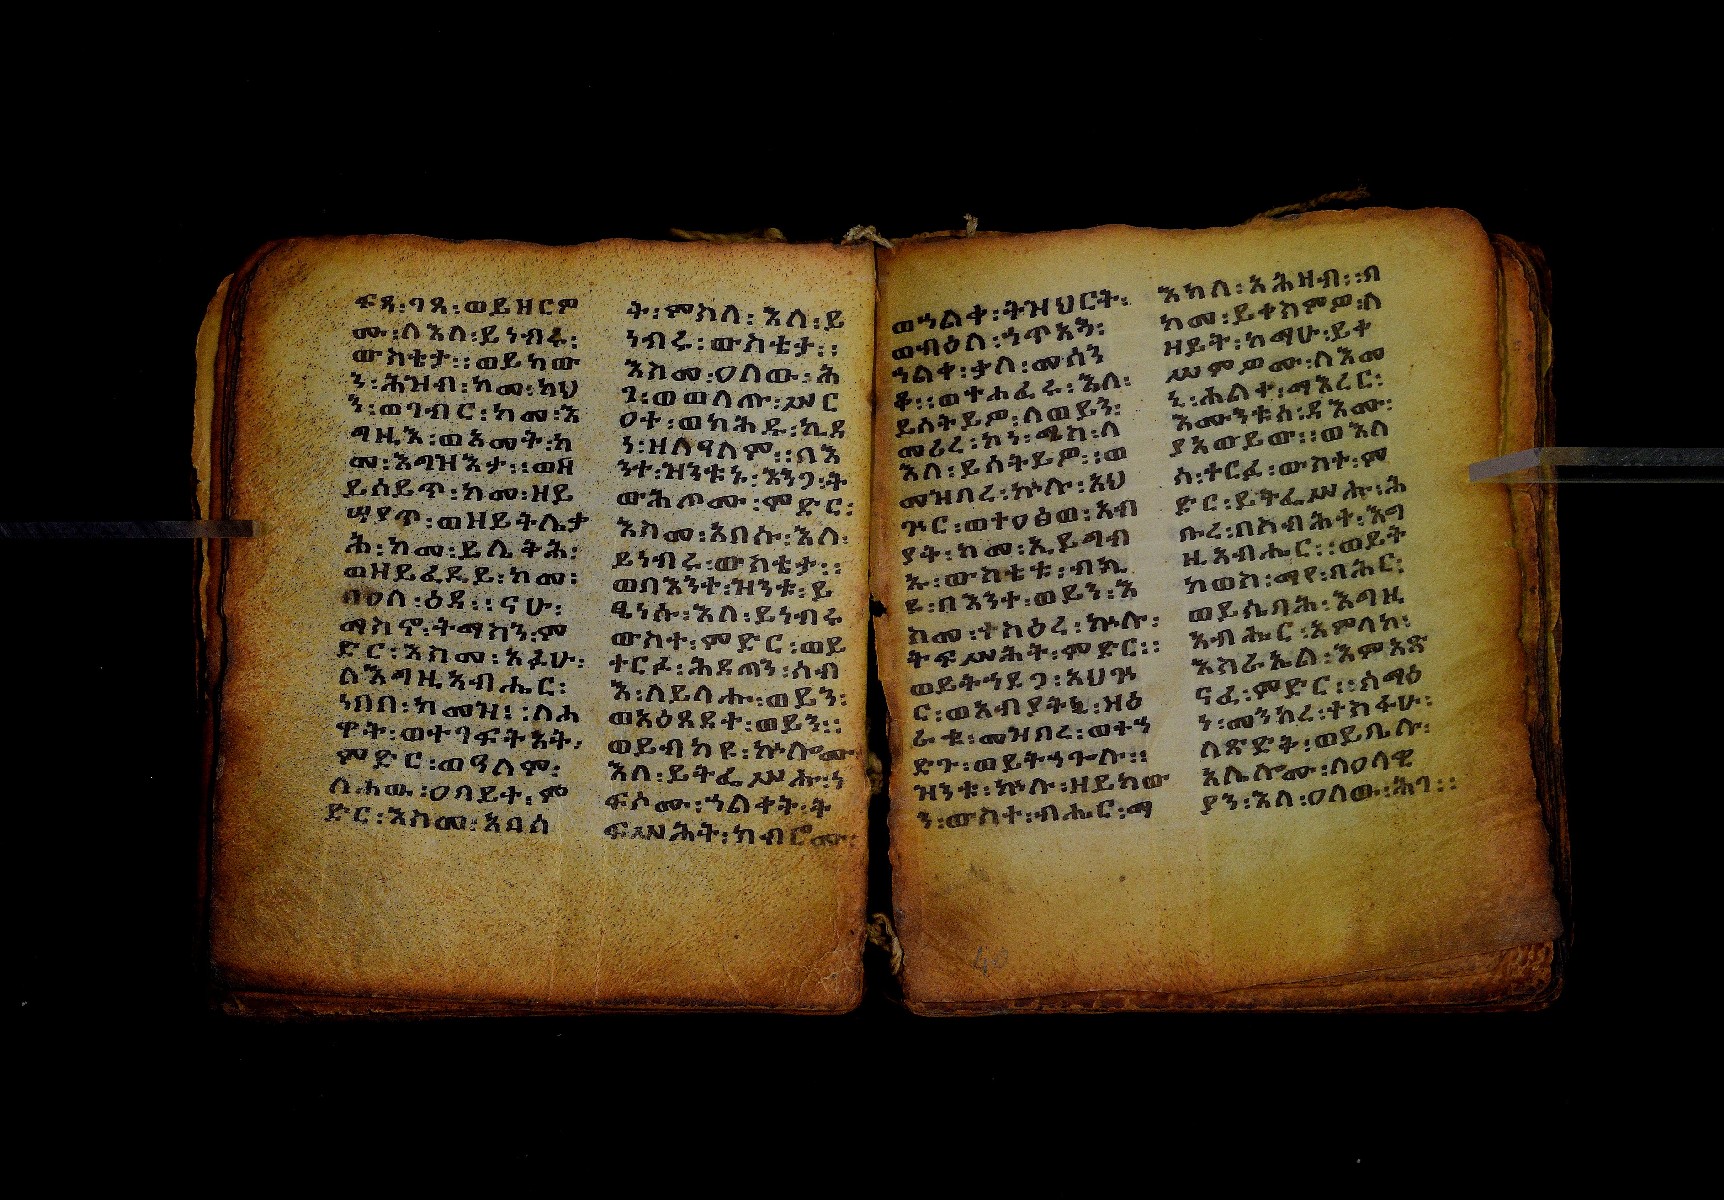 ፍጻ፡ገጻ፡ወይዘርዎ
ሙ፡ለእለ፡ይነብሩ፡
ውስቴታ፡፡ወይከው
ን፡ሕዝብ፡ከመ፡ካህ
ን፡ወገብር፡ከመ፡እ
ግዚኡ፡ወአመት፡ከ
መ፡እግዝእታ፡፡ወዘ
ይሰይጥ፡ከመ፡ዘይ
ሣያጥ፡ወዘይትሌቃ
ሕ፡ከመ፡ይሌቅሕ፡
ወዘይፈዲይ፡ከመ፡
በዐለ፡ዕዳ፡፡ናሁ፡
ማስኖ፡ትማስን፡ም
ድር፡እስመ፡አፉሁ፡
ለእግዚአብሔር፡
ነበበ፡ከመዝ፡፡ለሐ
ዋት፡ወተገፍትዐት፡
ምድር፡ወዓለም፡
ለሐዉ፡ዐበይተ፡ም
ድር፡እስመ፡አበሰ
ት፡ምስለ፡እለ፡ይ
ነብሩ፡ውስቴታ፡፡
እስመ፡ዐለው፡ሕ
ገ፡ወወለጡ፡ሥር
ዐተ፡ወክሕዱ፡ኪዳ
ን፡ዘለዓለም፡፡በእ
ንተ፡ዝንቱኒ፡እንጋ፡ት
ውሕጦሙ፡ምድር፡
እስመ፡አበሱ፡እለ፡
ይነብሩ፡ውስቴታ፡፡
ወበእንተ፡ዝንቱ፡ይ
ጼነሱ፡እለ፡ይነብሩ
ውስተ፡ምድር፡ወይ
ተርፉ፡ሕዳጣን፡ሰብ
እ፡ለይላሑ፡ወይን፡
ወአዕጻዳተ፡ወይን፡፡
ወይብክዩ፡ኵሎሙ
እለ፡ይትፌሥሑ፡ነ
ፍሶሙ፡ኀልቀት፡ት
ፍሥሕት፡ከብሮሙ፡
ወኀልቀ፡ትዝህርት፡
ወብዕለ፡ኀጥአን፡
ኀልቀ፡ቃለ፡መሰን
ቆ፡፡ወተሐፈሩ፡እለ፡
ይሰትይዎ፡ለወይን፡
መሪረ፡ኮነ፡ሜስ፡ለ
እለ፡ይሰትይዎ፡፡ወ
መዝበረ፡ኵሉ፡አህ
ጉር፡ወተዐፅወ፡አብ
ያት፡ከመ፡ኢይግብ
ኡ፡ውስቴቱ፡ብኪ
ዩ፡በእንተ፡ወይን፡እ
ስመ፡ተስዕረ፡ኵሉ፡
ትፍሥሕት፡ምድር፡፡
ወይትኀደጋ፡አህጉ
ር፡ወአብያትኒ፡ዝዕ
ራቱ፡መዝበረ፡ወተኀ
ድጉ፡ወይትኀጐሉ፡፡
ዝንቱ፡ኵሉ፡ዘይከው
ን፡ውስተ፡ብሔር፡ማ
እከለ፡አሕዛብ፡፡በ
ከመ፡ይቀስምዎ፡ለ
ዘይት፡ከማሁ፡ይቀ
ሥምዎሙ፡ለእመ
ኒ፡ሕልቀ፡ማእረር፡
እሙንቱሰ፡ዳእሙ፡
ያአወይው፡፡ወእለ
ሰ፡ተርፈ፡ውስተ፡ም
ድር፡ይትፌሥሑ፡ሕ
ቡረ፡በስብሕተ፡እግ
ዚአብሔር፡፡ወይት
ከወስ፡ማየ፡ባሕር፡
ወይሴባሕ፡እግዚ
አብሔር፡አምላከ፡
እስራኤል፡እምአጽ
ናፈ፡ምድር፡፡ሰማዕ
ነ፡መንከረ፡ተስፋሁ፡
ለጽድት፡ወይቤሉ፡
አሌሎሙ፡ለዐላዊ
ያን፡እለ፡ዐለው፡ሕገ፡፡